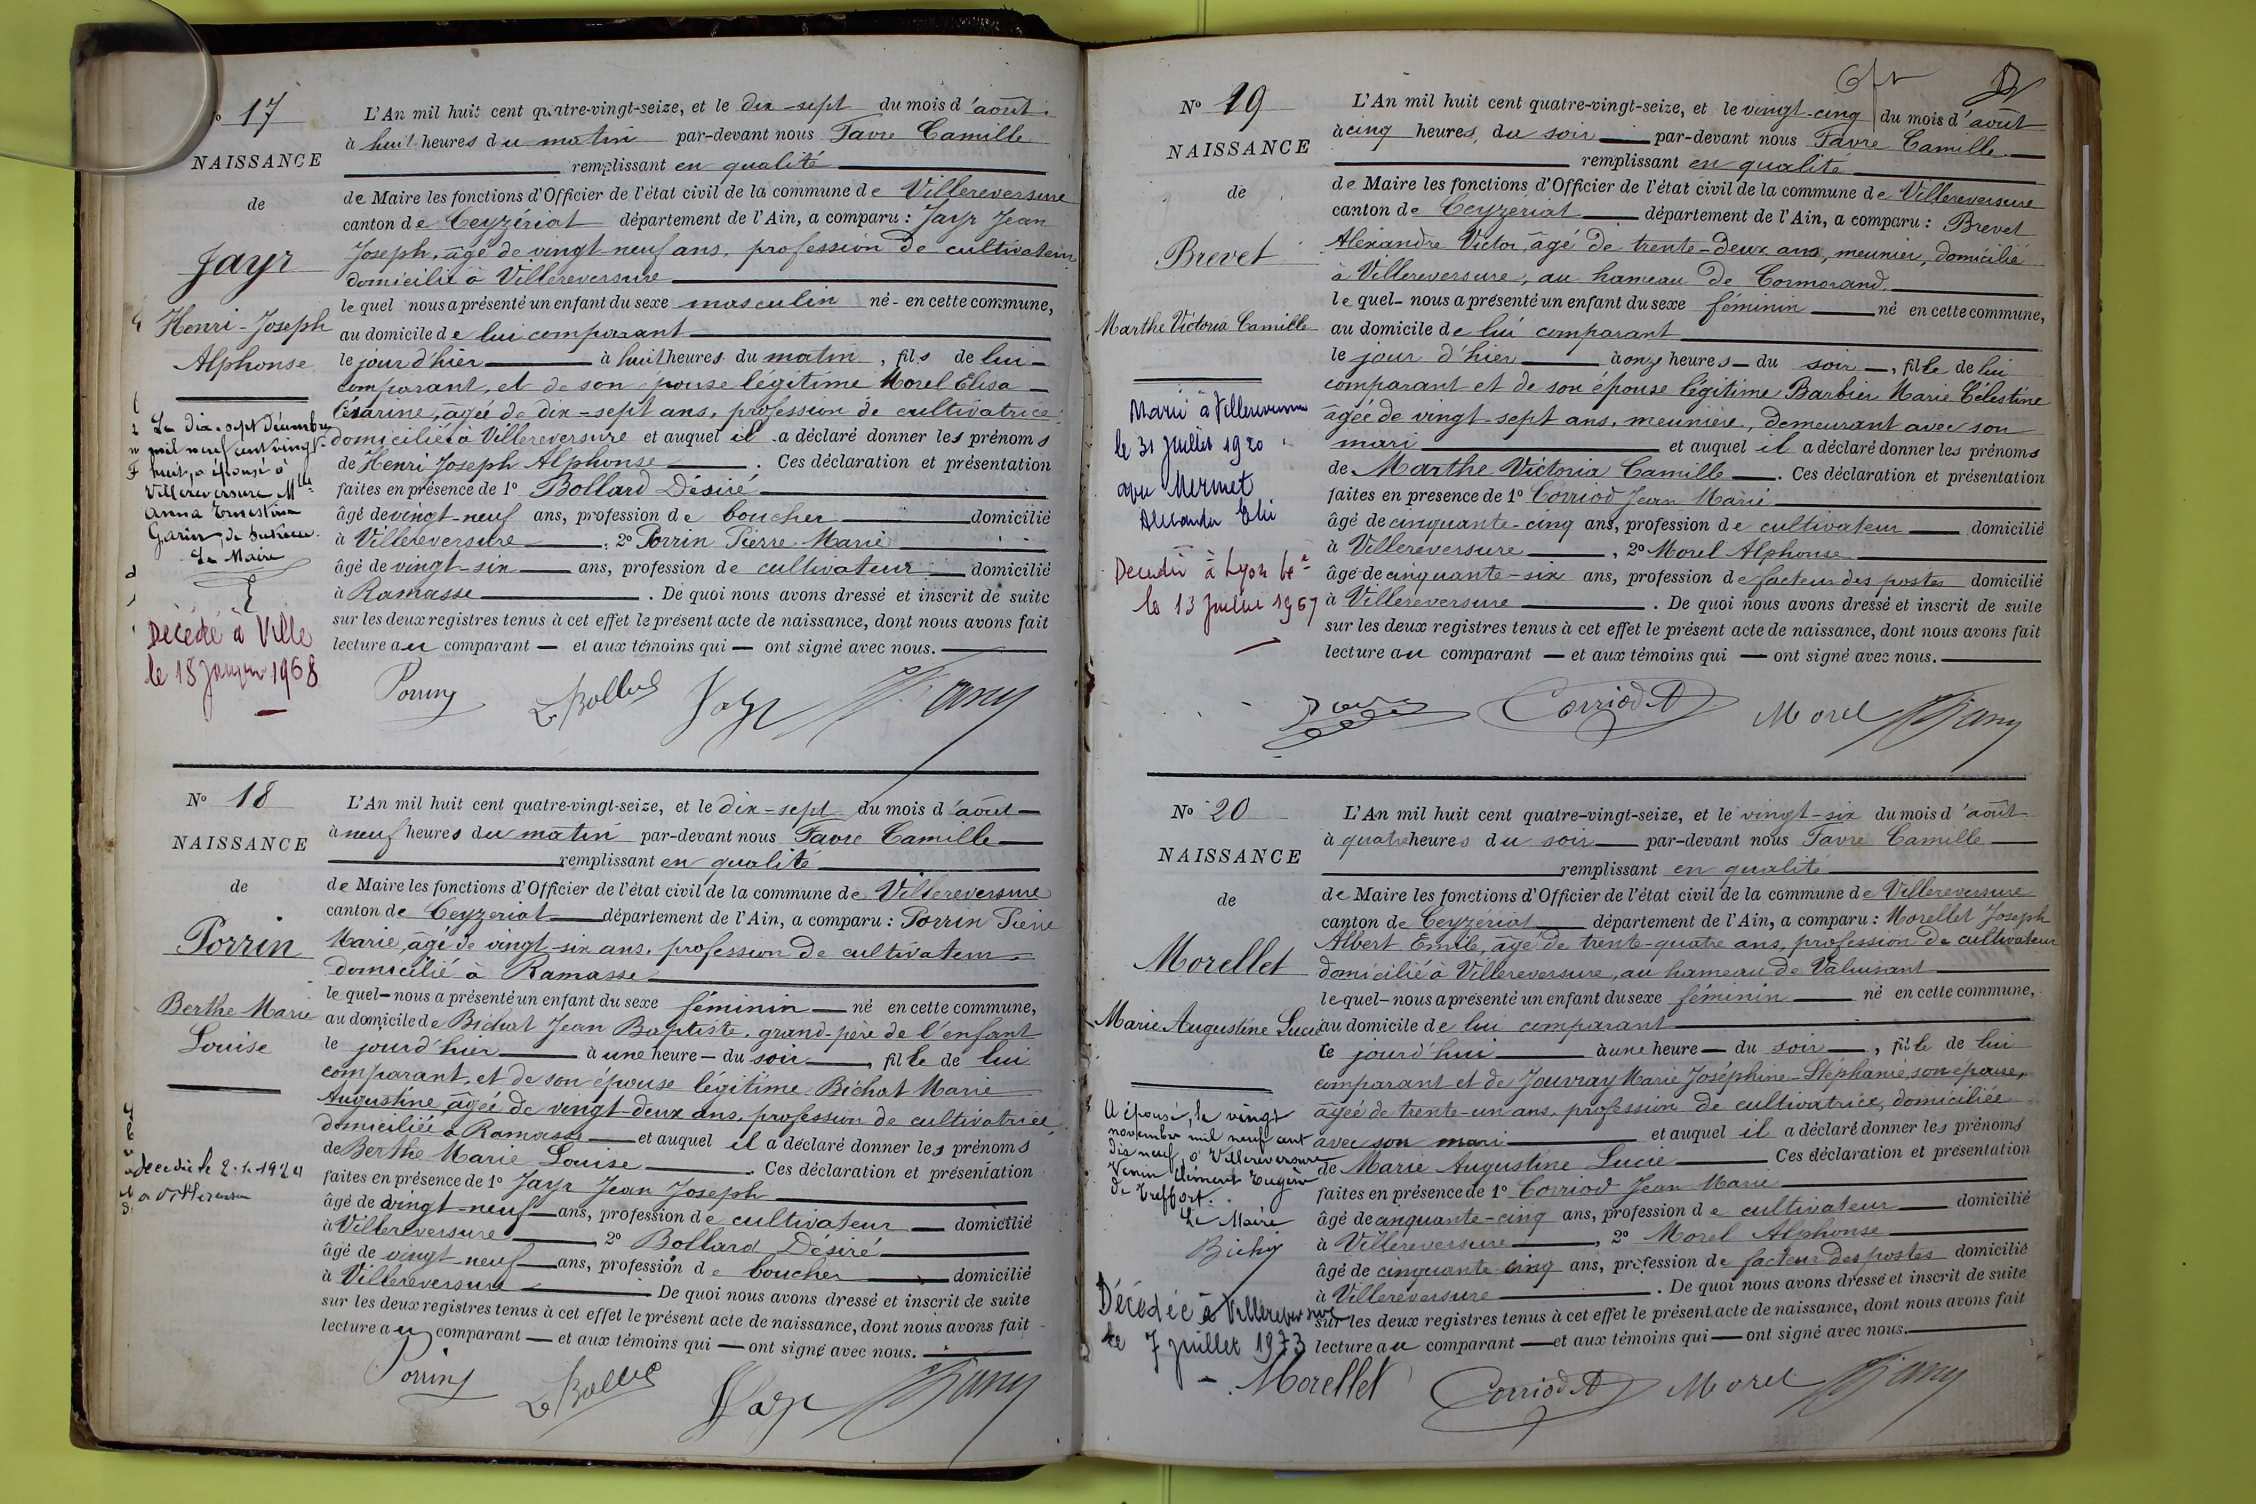 N° 17
NAISSANCE
de
Jayr
Henri-Joseph
Alphonse
Le dix-sept Décembre
mil neuf cent vingt-
huit, a épousé à
Villereversure Mlle
Anna Ernestine
Garin, de
Le Maire
Décédé à Ville
le 18 Janvier 1968
L'An mil huit cent quatre-vingt-seize, et le dix-sept du mois d'août
à huit heures du matin par-devant nous Favre Camille
remplissant en qualité
de Maire les fonctions d'Officier de l'état civil de la commune de Villereversure
canton de Ceyzériat département de l'Ain, a comparu : Jayr Jean
Joseph, âgé de vingt neuf ans, profession de cultivateur
domicilié à Villereversure
le quel nous a présenté un enfant du sexe masculin né en cette commune,
au domicile de lui comparant
le jour d'hier à huit heures du matin, fils de lui
comparant, et de son épouse légitime Morel Elisa
Césarine, âgée de dix-sept ans, profession de cultivatrice
domiciliée à Villereversure et auquel il a déclaré donner les prénoms
de Henri Joseph Alphonse . Ces déclaration et présentation
faites en présence de 1° Bollard Désiré
âgé de vingt-neuf ans, profession de boucher domicilié
à Villereversure , 2° Porrin Pierre Marie
âgé de vingt-six ans, profession de cultivateur domicilié
à Ramasse . De quoi nous avons dressé et inscrit de suite
sur les deux registres tenus à cet effet le présent acte de naissance, dont nous avons fait
lecture au comparant — et aux témoins qui — ont signé avec nous.
Porrin
Bollard
Jayr
N° 18
NAISSANCE
de
Porrin
Berthe Marie
Louise
décédée le 2-1-1924
L'An mil huit cent quatre-vingt-seize, et le dix-sept du mois d'août
à neuf heures du matin par-devant nous Favre Camille
remplissant en qualité
de Maire les fonctions d'Officier de l'état civil de la commune de Villereversure
canton de Ceyzeriat département de l'Ain, a comparu : Porrin Pierre
Marie, âgé de vingt-six ans, profession de cultivateur
domicilié à Ramasse
le quel nous a présenté un enfant du sexe féminin né en cette commune,
au domicile de Bichat Jean Baptiste, grand-père de l'enfant
le jour d'hier à une heure du soir, fille de lui
comparant, et de son épouse légitime Bichat Marie
Augustine, âgée de vingt-deux ans, profession de cultivatrice
domiciliée à Ramasse et auquel il a déclaré donner les prénoms
de Berthe Marie Louise . Ces déclaration et présentation
faites en présence de 1° Jayr Jean Joseph
âgé de vingt-neuf ans, profession de cultivateur domicilié
à Villereversure 2° Bollard Désiré
âgé de vingt neuf ans, profession de boucher domicilié
à Villereversure . De quoi nous avons dressé et inscrit de suite
sur les deux registres tenus à cet effet le présent acte de naissance, dont nous avons fait
lecture au comparant — et aux témoins qui — ont signé avec nous.
Porrin
Bollard
Jayr
N° 19
NAISSANCE
de
Brevet
Marthe Victoria Camille
Marié à Villereversure
le 31 Juillet 1920
avec Mermet
Alexandre Elie
Décédée à Lyon 6e
le 13 Juillet 1967
L'An mil huit cent quatre-vingt-seize, et le vingt-cinq du mois d'août
à cinq heures du soir par-devant nous Favre Camille
remplissant en qualité
de Maire les fonctions d'Officier de l'état civil de la commune de Villereversure
canton de Ceyzeriat département de l'Ain, a comparu : Brevet
Alexandre Victor, âgé de trente-deux ans, meunier, domicilié
à Villereversure, au hameau de Cormorand.
le quel nous a présenté un enfant du sexe féminin né en cette commune,
au domicile de lui comparant
le jour d'hier à onze heures du soir, fille de lui
comparant et de son épouse légitime Barbier Marie Célestine
âgée de vingt-sept ans, meunière, demeurant avec son
mari et auquel il a déclaré donner les prénoms
de Marthe Victoria Camille . Ces déclaration et présentation
faites en presence de 1° Corriod Jean Marie
âgé de cinquante-cinq ans, profession de cultivateur domicilié
à Villereversure , 2° Morel Alphonse
âgé de cinquante-six ans, profession de facteur des postes domicilié
à Villereversure . De quoi nous avons dressé et inscrit de suite
sur les deux registres tenus à cet effet le présent acte de naissance, dont nous avons fait
lecture au comparant — et aux témoins qui — ont signé avec nous.
Corriod
Morel
N° 20
NAISSANCE
de
Morellet
Marie Augustine Lucie
A épousé, le vingt
novembre mil neuf cent
dix neuf, à Villereversure
Venin Clément Eugène
de Treffort.
Le Maire
Décédée à Villereversure
le 7 juillet 1973
L'An mil huit cent quatre-vingt-seize, et le vingt-six du mois d'août
à quatre heures du soir par-devant nous Favre Camille
remplissant en qualité
de Maire les fonctions d'Officier de l'état civil de la commune de Villereversure
canton de Ceyzériat département de l'Ain, a comparu : Morellet Joseph
Albert Emile, âgé de trente-quatre ans, profession de cultivateur
domicilié à Villereversure, au hameau de Valuisant
le quel nous a présenté un enfant du sexe féminin né en cette commune,
au domicile de lui comparant
le jourd'hui à une heure du soir, fille de lui
comparant et de Jouvray Marie Joséphine-Stéphanie, son épouse,
âgée de trente-un ans, profession de cultivatrice, domiciliée
avec son mari et auquel il a déclaré donner les prénoms
de Marie Augustine Lucie Ces déclaration et présentation
faites en présence de 1° Corriod Jean Marie
âgé de cinquante-cinq ans, profession de cultivateur domicilié
à Villereversure , 2° Morel Alphonse
âgé de cinquante cinq ans, profession de facteur des postes domicilié
à Villereversure . De quoi nous avons dressé et inscrit de suite
sur les deux registres tenus à cet effet le présent acte de naissance, dont nous avons fait
lecture au comparant — et aux témoins qui — ont signé avec nous.
Morellet
Corriod
Morel